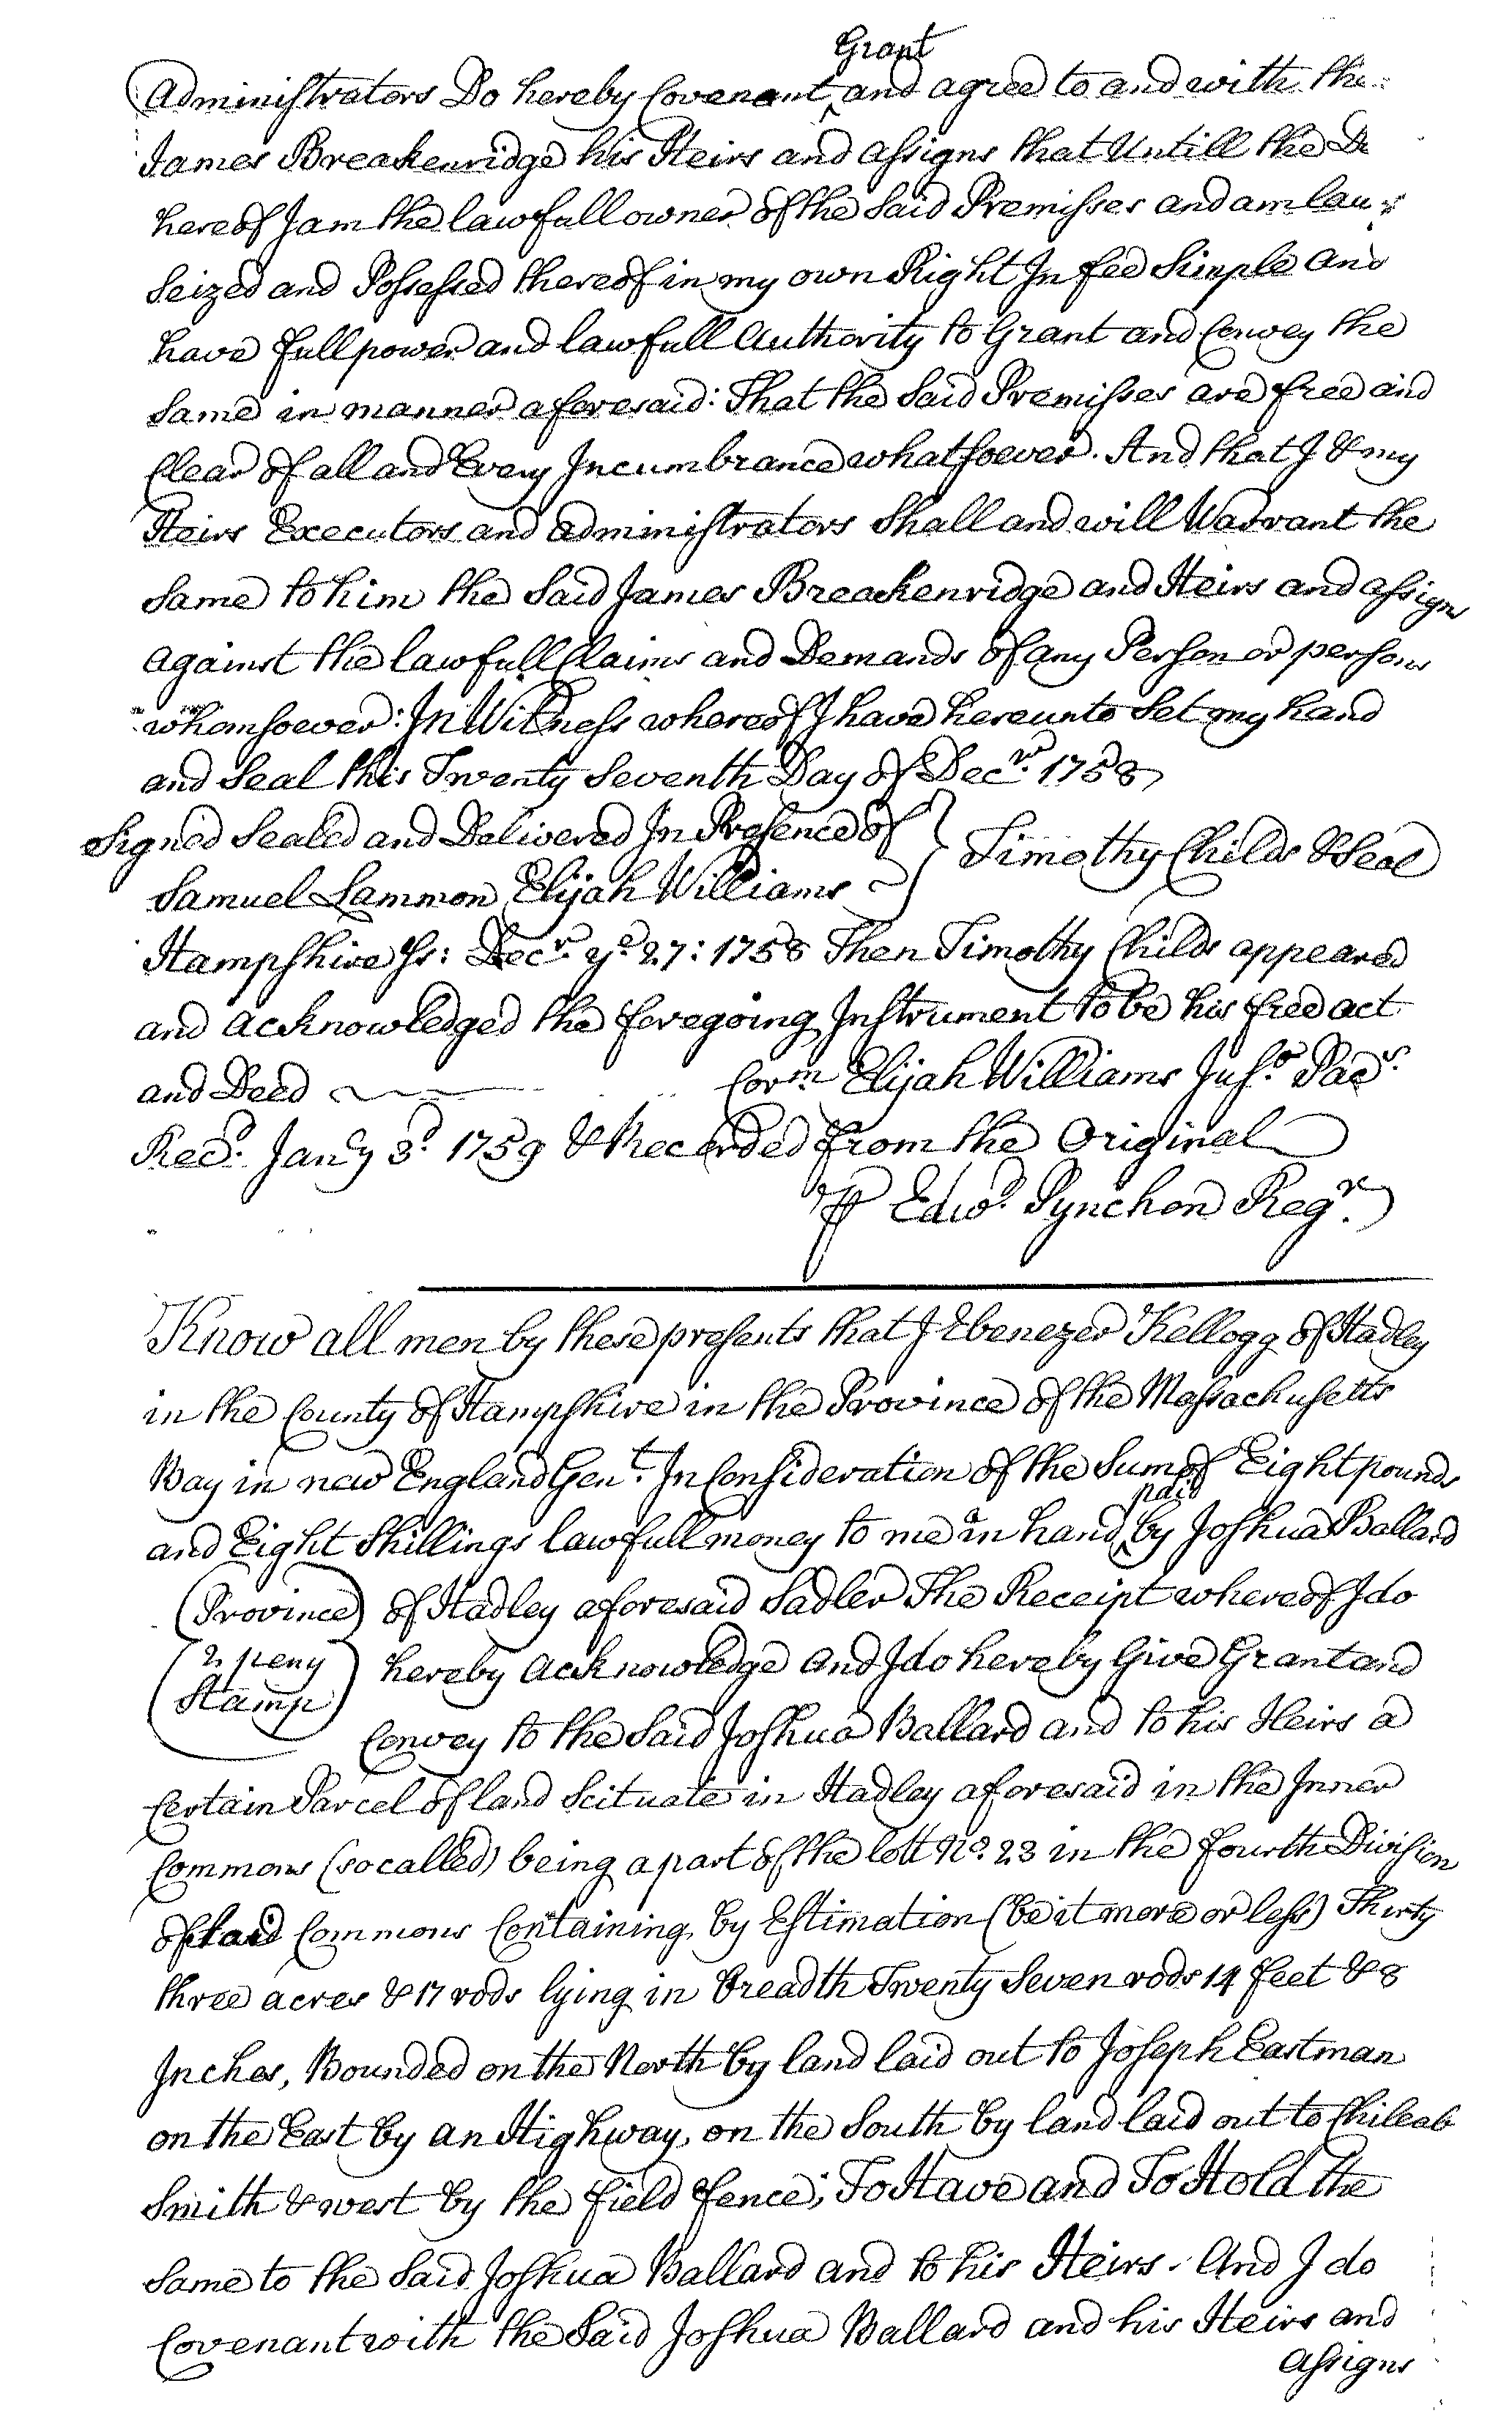 Grant
Administrators Do hereby Covenant ‸ and agree to and with the
James Breakenridge his Heirs and assigns that Untill the De
hereof I am the lawfull owner of the Said Premisses and am law
Seized and Possessed thereof in my own Right In fee Simple and
have full power and lawfull Authority to Grant and Convey the
Same in manner aforesaid: That the Said Premisses are free and
Clear of all and Every Incumbrance whatsoever. And that I & my
Heirs Executors and administrators Shall and will Warrant the
Same to him the Said James Breackenridge and Heirs and assigns
against the lawfull Claims and Demands of any Person or persons
whomsoever: In Witness whereof I have hereunto Set my hand
and Seal this Twenty Seventh Day of Decr. 1758
Signed Sealed and Delivered In Presence of } Timothy Childs & Seal
Samuel Lammon Elijah Williams
Hampshire Ss: Decr. ye. 27: 1758 Then Timothy Childs appeared
and acknowledged the foregoing Instrument to be his free act
and Deed Corm Elijah Williams Juso. Pacs.
Recd. Jany 3d. 1759 & Recorded from the Original
⅌ Edwd. Pynchon Regr.
Know all men by these presents that I Ebenezer Kellogg of Hadley
in the County of Hampshire in the Province of the Massachusetts
Bay in new England Gent. In Consideration of the Sum of Eight pounds
paid
and Eight Shillings lawfull money to me in hand ‸ by Joshua Ballard
(Province) of Hadley aforesaid Sadler The Receipt whereof I do
(2 peny hereby acknowledge and I do hereby Give Grant and
Stamp) Convey to the Said Joshua Ballard and to his Heirs a
Certain Parcel of land Scituate in Hadley aforesaid in the Inner
Commons (so called) being a part of the lott No. 23 in the fourth Division
of said Commons Containing by Estimation (be it more or less) Thirty
three acres & 17 rods lying in breadth Twenty Seven rods 14 feet & 8
Inches, Bounded on the North by land laid out to Joseph Eastman
on the East by an Highway, on the South by land laid out to Chileab
Smith & west by the field fence; To Have and To Hold the
Same to the Said Joshua Ballard and to his Heirs. And I do
Covenant with the Said Joshua Ballard and his Heirs and
assigns